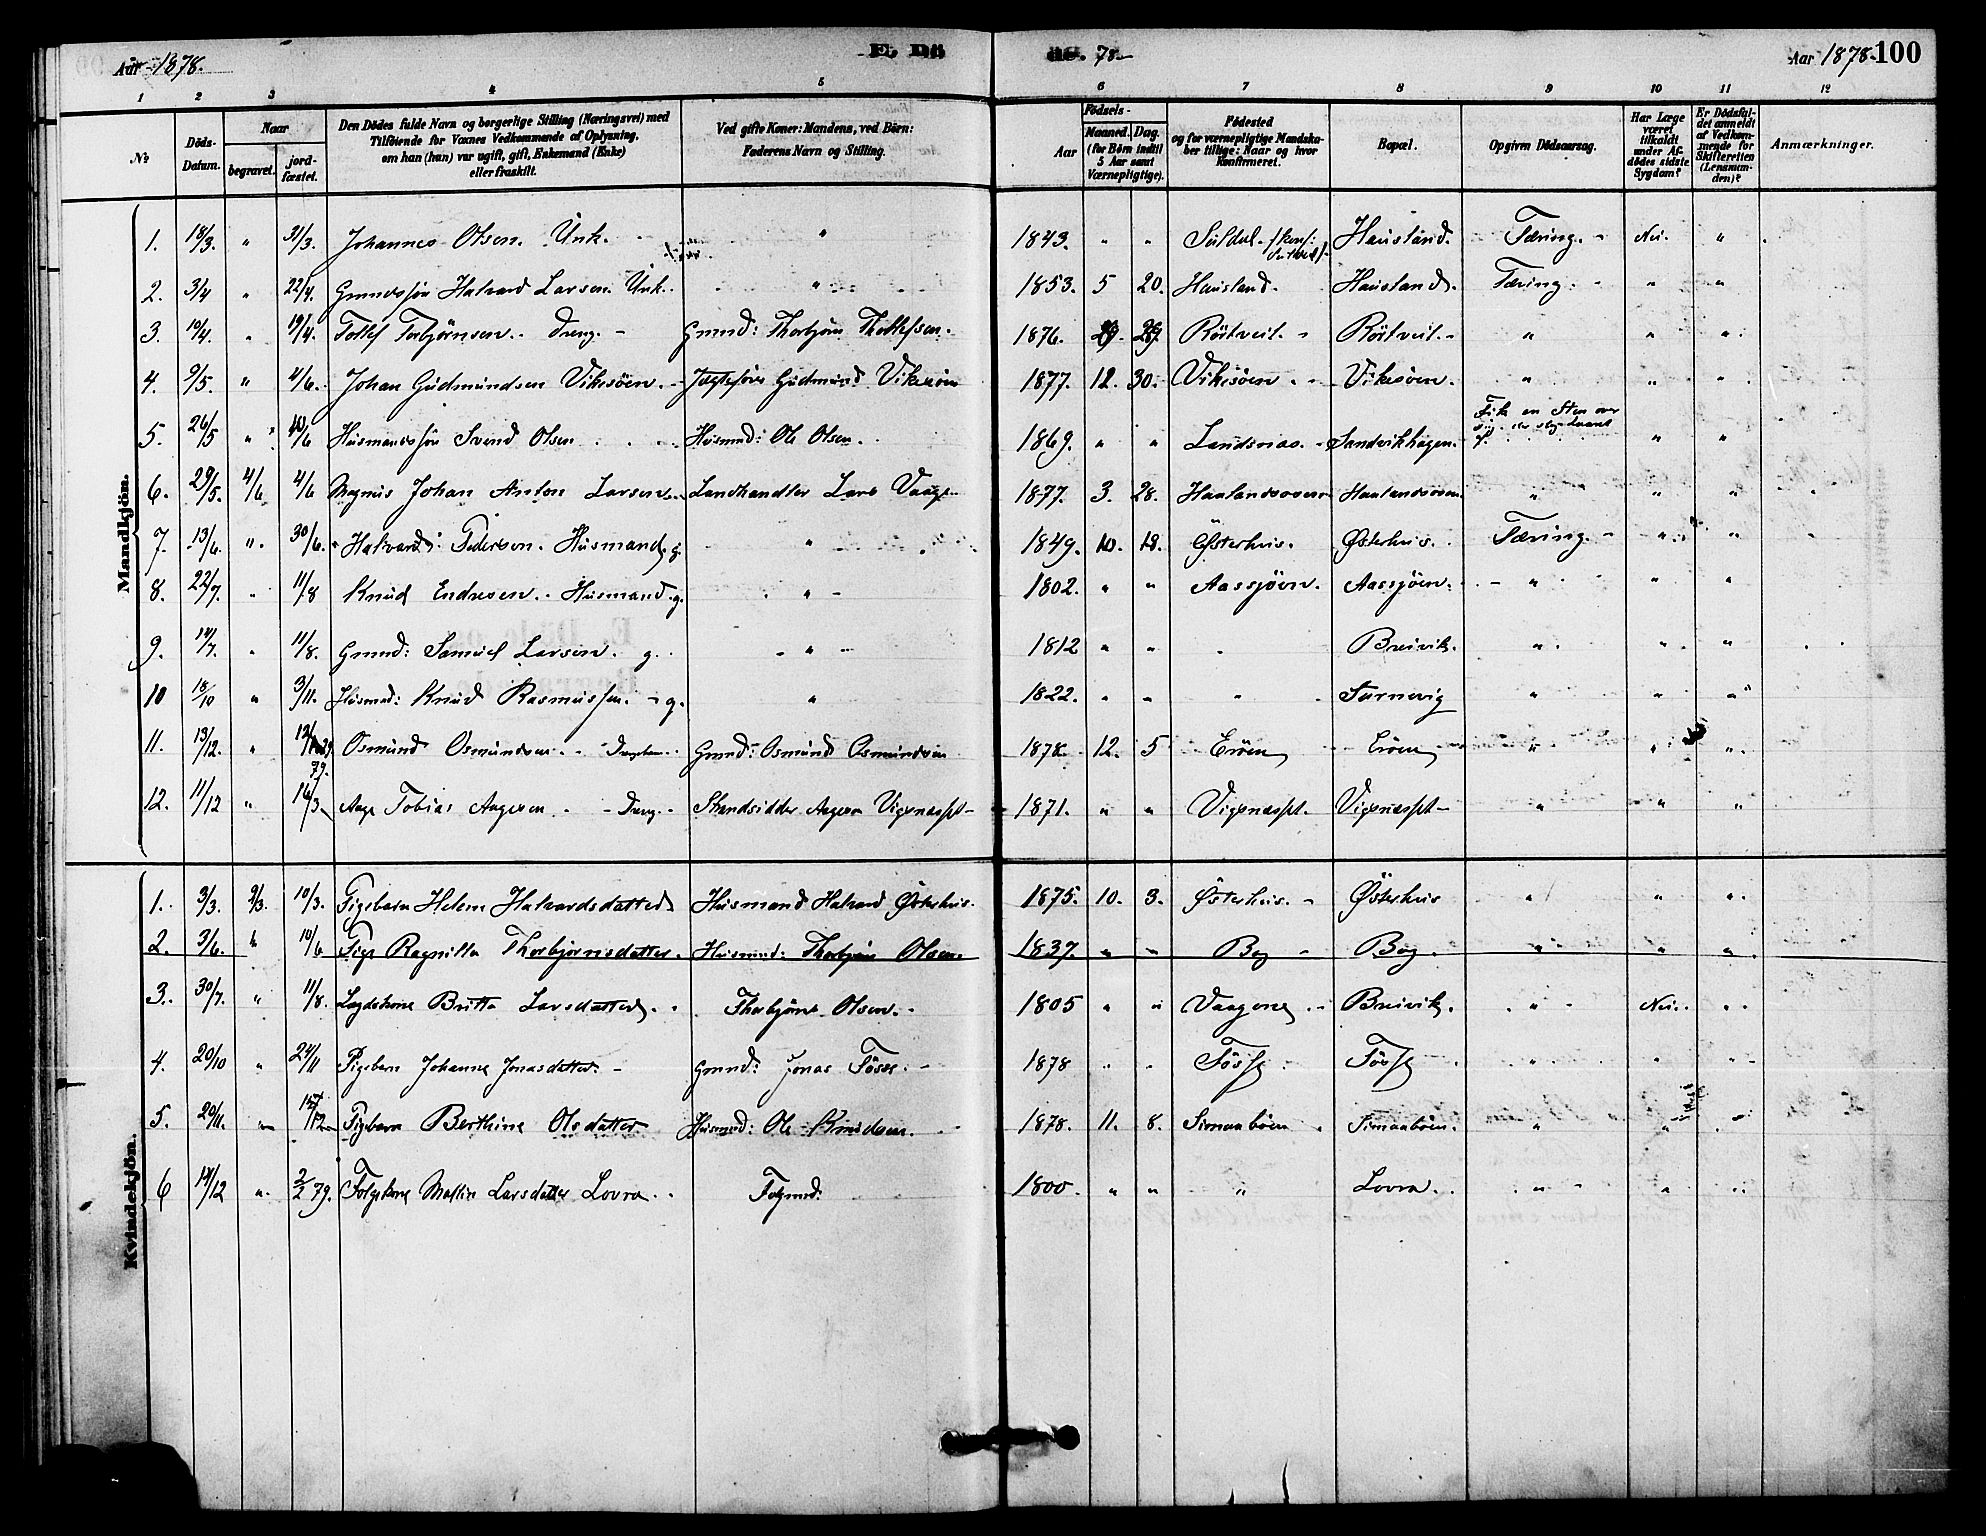 Aar 1878. E. Dö
de. 78 Aar 1878. 100
1 2 3 4 5 6 7 8 9 10 11 12
No Döds-Datum. Naar begravet. jordfæstet. Den Dödes fulde Navn og borgerlige Stilling (Næringsvei) med Tilföiende for Voxnes Vedkommende af Oplysning, om han (hun) var ugift, gift, Enkemand (Enke) eller fraskilt. Ved gifte Koner: Mandens, ved Börn: Faderens Navn og Stilling. Födsels- Aar Maaned. Dag. (for Börn indtil 5 Aar samt Værnepligtige). Födested og for værnepligtige Mandskaber tillige: Naar og hvor Konfirmeret. Bopæl. Opgiven Dödsaarsag. Har Læge været tilkaldt under Afdödes sidste Sygdom? Er Dödsfaldet anmeldt af Vedkommende for Skifteretten (Lensmanden)? Anmærkninger.
Mandkjön.
1. 18/3. " 31/3. Johannes Olsen. Unk. " 1843. " " Suldal. Hausland. Tæring. Nei. "
2. 3/4 " 22/4. Gmandssøn Halvard Larsen. Unk. " 1853. 5 20. Hausland. Hausland. Tæring. " "
3. 10/4. " 19/4. Tollef Torbjörnsen. Dreng. Gmnd: Thorbjörn Thollefsen. 1876. 29. Rörtveit. Rörtveit. " " "
4. 9/5. " 4/6. Johan Gudmundsen Vikesöen. Jægtefører Gudmund Vikesöen 1877. 12. 30. Vikesöen. Vikesöen. " " "
5. 26/5 " 10/6 Husmandssøn Svend Olsen Husmd: Ole Olsen. 1869. " " Landsnæs. Sandvikhagen. Fik en Sten over sig " "
6. 29/5. 4/6 4/6 Magnus Johan Anton Larsen. Landhandler Lars Vaage 1877. 3. 28. Haalandsosen Haalandsosen. " " "
7. 13/6. " 30/6. Halvard Pedersen. Husmand. g. " 1849. 10. 18. Østerhus. Østerhus. Tæring. " "
8. 22/7. " 11/8 Knud Endresen. Husmand. g. " 1802. " " Aassjöen. Aassjöen. " " "
9. 14/7. " 11/8. Gmnd: Samuel Larsen. g. " 1812 " " Breivik. " " "
10 18/10 " 3/11. Husmd: Knud Rasmussen. g. " 1822. " " " Tarnevig " " "
11. 13/12. " 79. Osmund Osmundsen. Gmnd: Osmund Osmundsen 1878. 12. 5 Eröen Eröen " " "
12. 11/12 " 16/3 Aage Tobias Aagesen. Dreng. Strandsidder Aagesen Vigsnæspt. 1871. " " Vigsnæspt. Vigsnæspt. " " "
Kvindekjön.
1. 3/3. 9/3. 10/3. Pigebarn Helene Halvardsdatter Husmand Halvard Østerhus. 1875. 10. 3. Østerhus. Østerhus " " "
2. 3/6. " 10/6 Pige Ragnilla Thorbjörnsdatter. Husmnd: Thorbjörn Olsen. 1837. " " Bog Bog. " " "
3. 30/7. " 11/8. Lægdskone Britta Larsdatter. Thorbjörn Olsen. 1805 " " Vaagene Breivik. " Nei. "
4. 20/10 " 24/11 Pigebarn Johanne Jonasdatter. Gmnd: Jonas Fösse. 1878 " " Fösse Fösse " " "
5. 20/11. " Pigebarn Berthine Olsdatter Husmd: Ole Knudsen. 1878. 11. 8. Simaaböen Simaaböen. " " "
6 19/12 " 2/2 79. Folgekone Mallin Larsdatter Lovra. Folgmnd: 1800. " " " Lovra. " " "